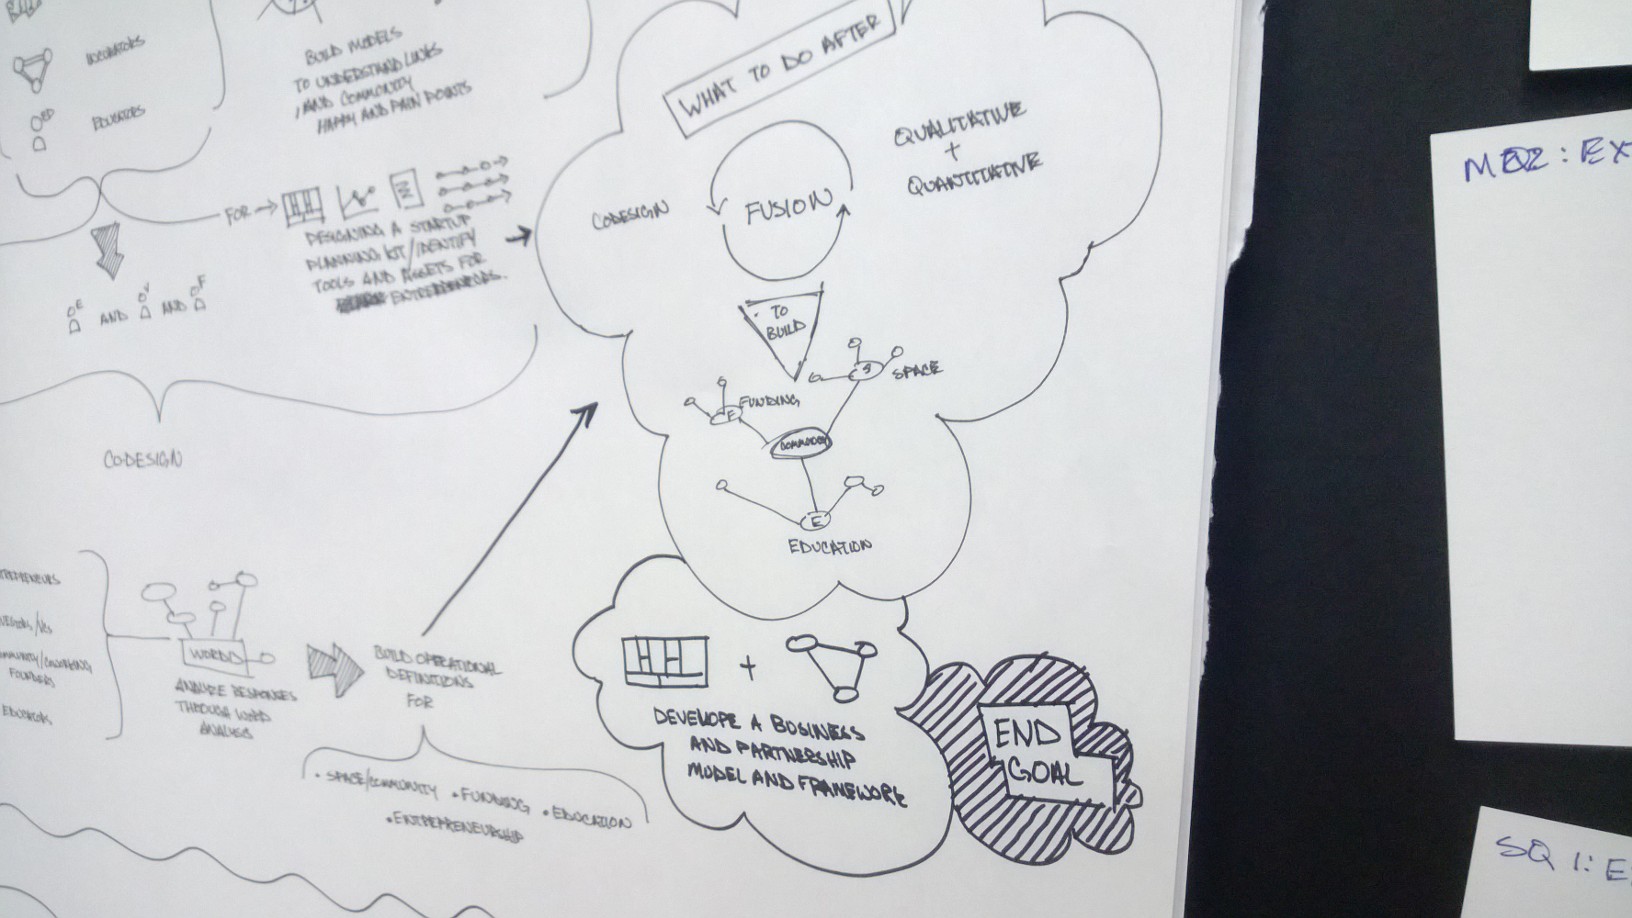 INCUBATORS
ED
EDUCATORS
BUILD MODELS
TO UNDERSTAND LINKS
AND COMMUNITY
HAPPY AND PAIN POINTS
FOR
DESIGNING A STARTUP
PLANNING KIT/IDENTIFY
TOOLS AND ASSETS FOR
ENTREPRENEURS.
E AND V AND F
CODESIGN
WHAT TO DO AFTER
QUALITATIVE
+
QUANTITATIVE
CODESIGN
FUSION
TO
BUILD
S
SPACE
FUNDING
F
COMMUNITY
E
EDUCATION
WORDD
ANALYZE RESPONSES
THROUGH WORD
ANALYSIS
BUILD OPERATIONAL
DEFINITIONS
FOR
• SPACE/COMMUNITY • FUNDING • EDUCATION
• ENTREPRENEURSHIP
TREPRENEURS
COWORKING
FOUNDERS
EDUCATORS
+
DEVELOPE A BUSINESS
AND PARTNERSHIP
MODEL AND FRAMEWORK
END
GOAL
MQ2: EX
SQ 1: E